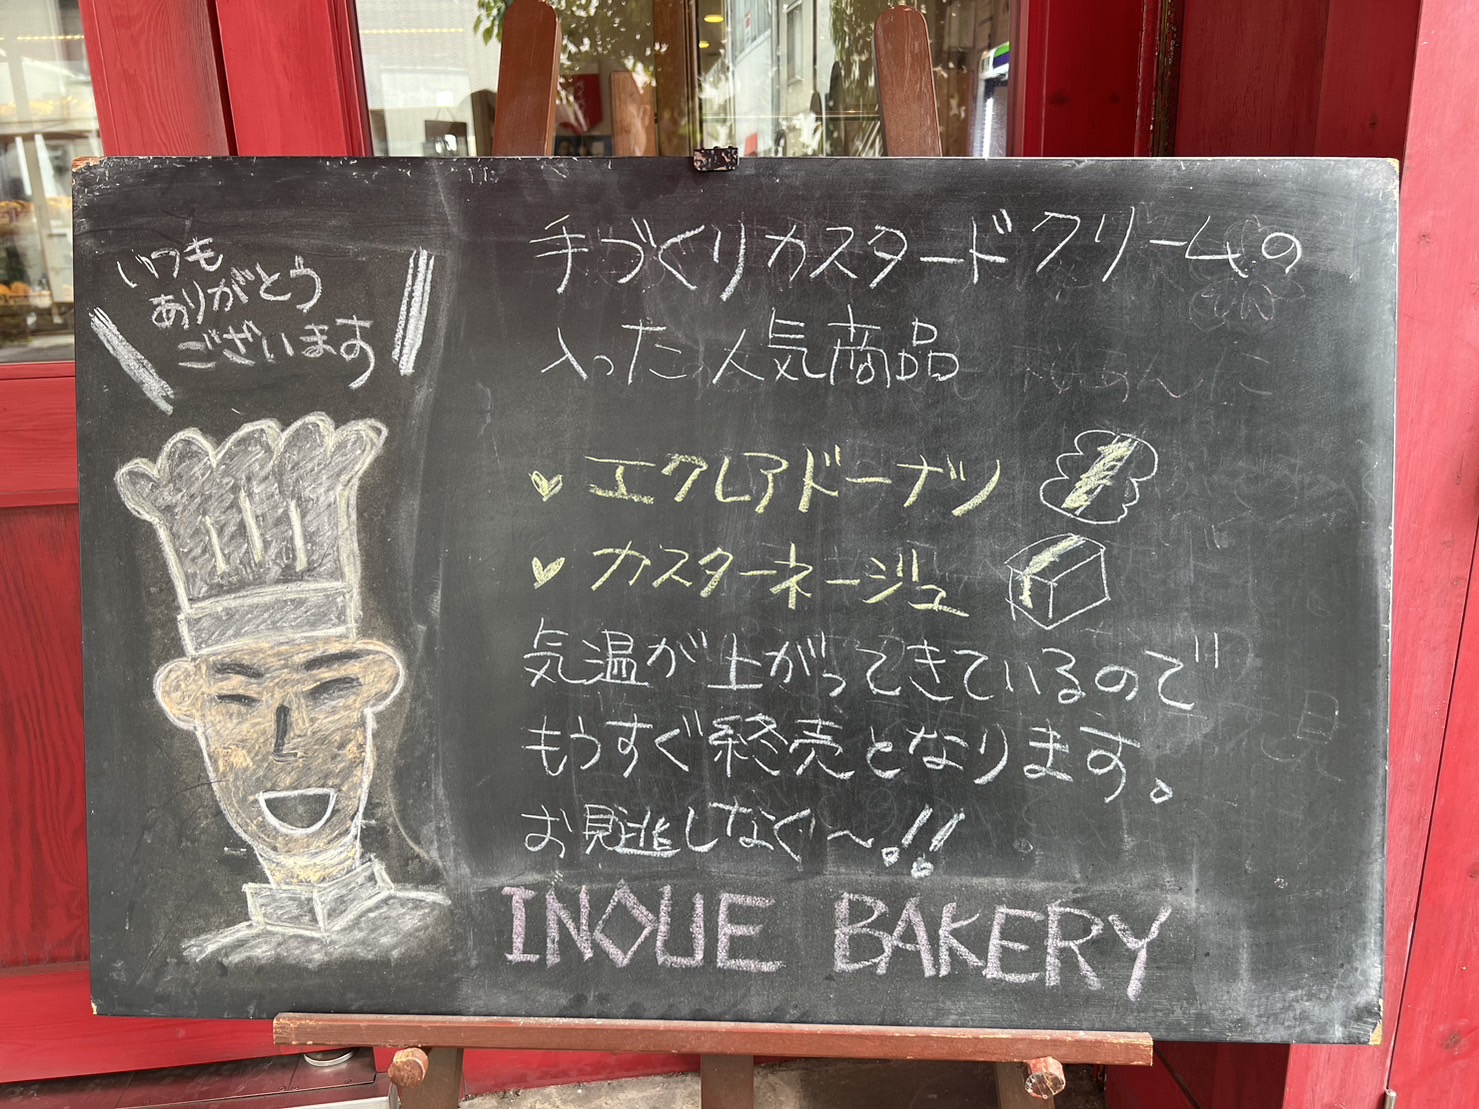 いつも
ありがとう
ございます
手づくりカスタードクリームの
入った人気商品
エクレアドーナツ
カスターネージュ
気温が上がってきているので
もうすぐ終売となります。
お見逃しなく〜!!
INOUE BAKERY